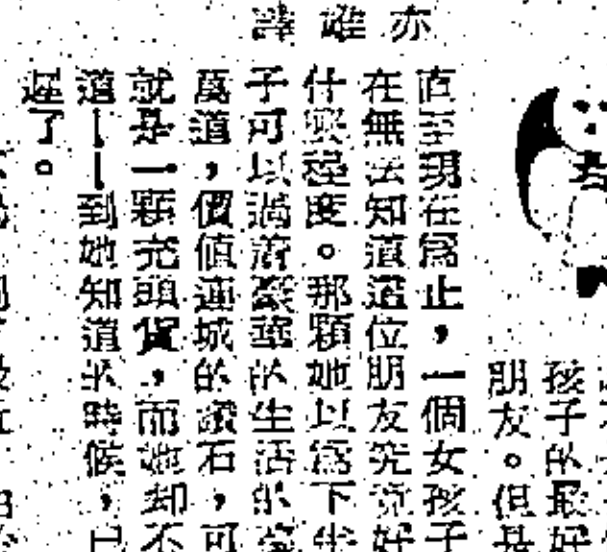 亦雄譯
孩子的最好
朋友。但是
直至現在為止，一個女孩子
在無法知道這位朋友究竟好
什麼程度。那顆她以為下半
子可以過着豪華的生活的
萬道，價值連城的鑽石，可
就是一顆充頭貨，而她却不
道——到她知道的時候，已
遲了。